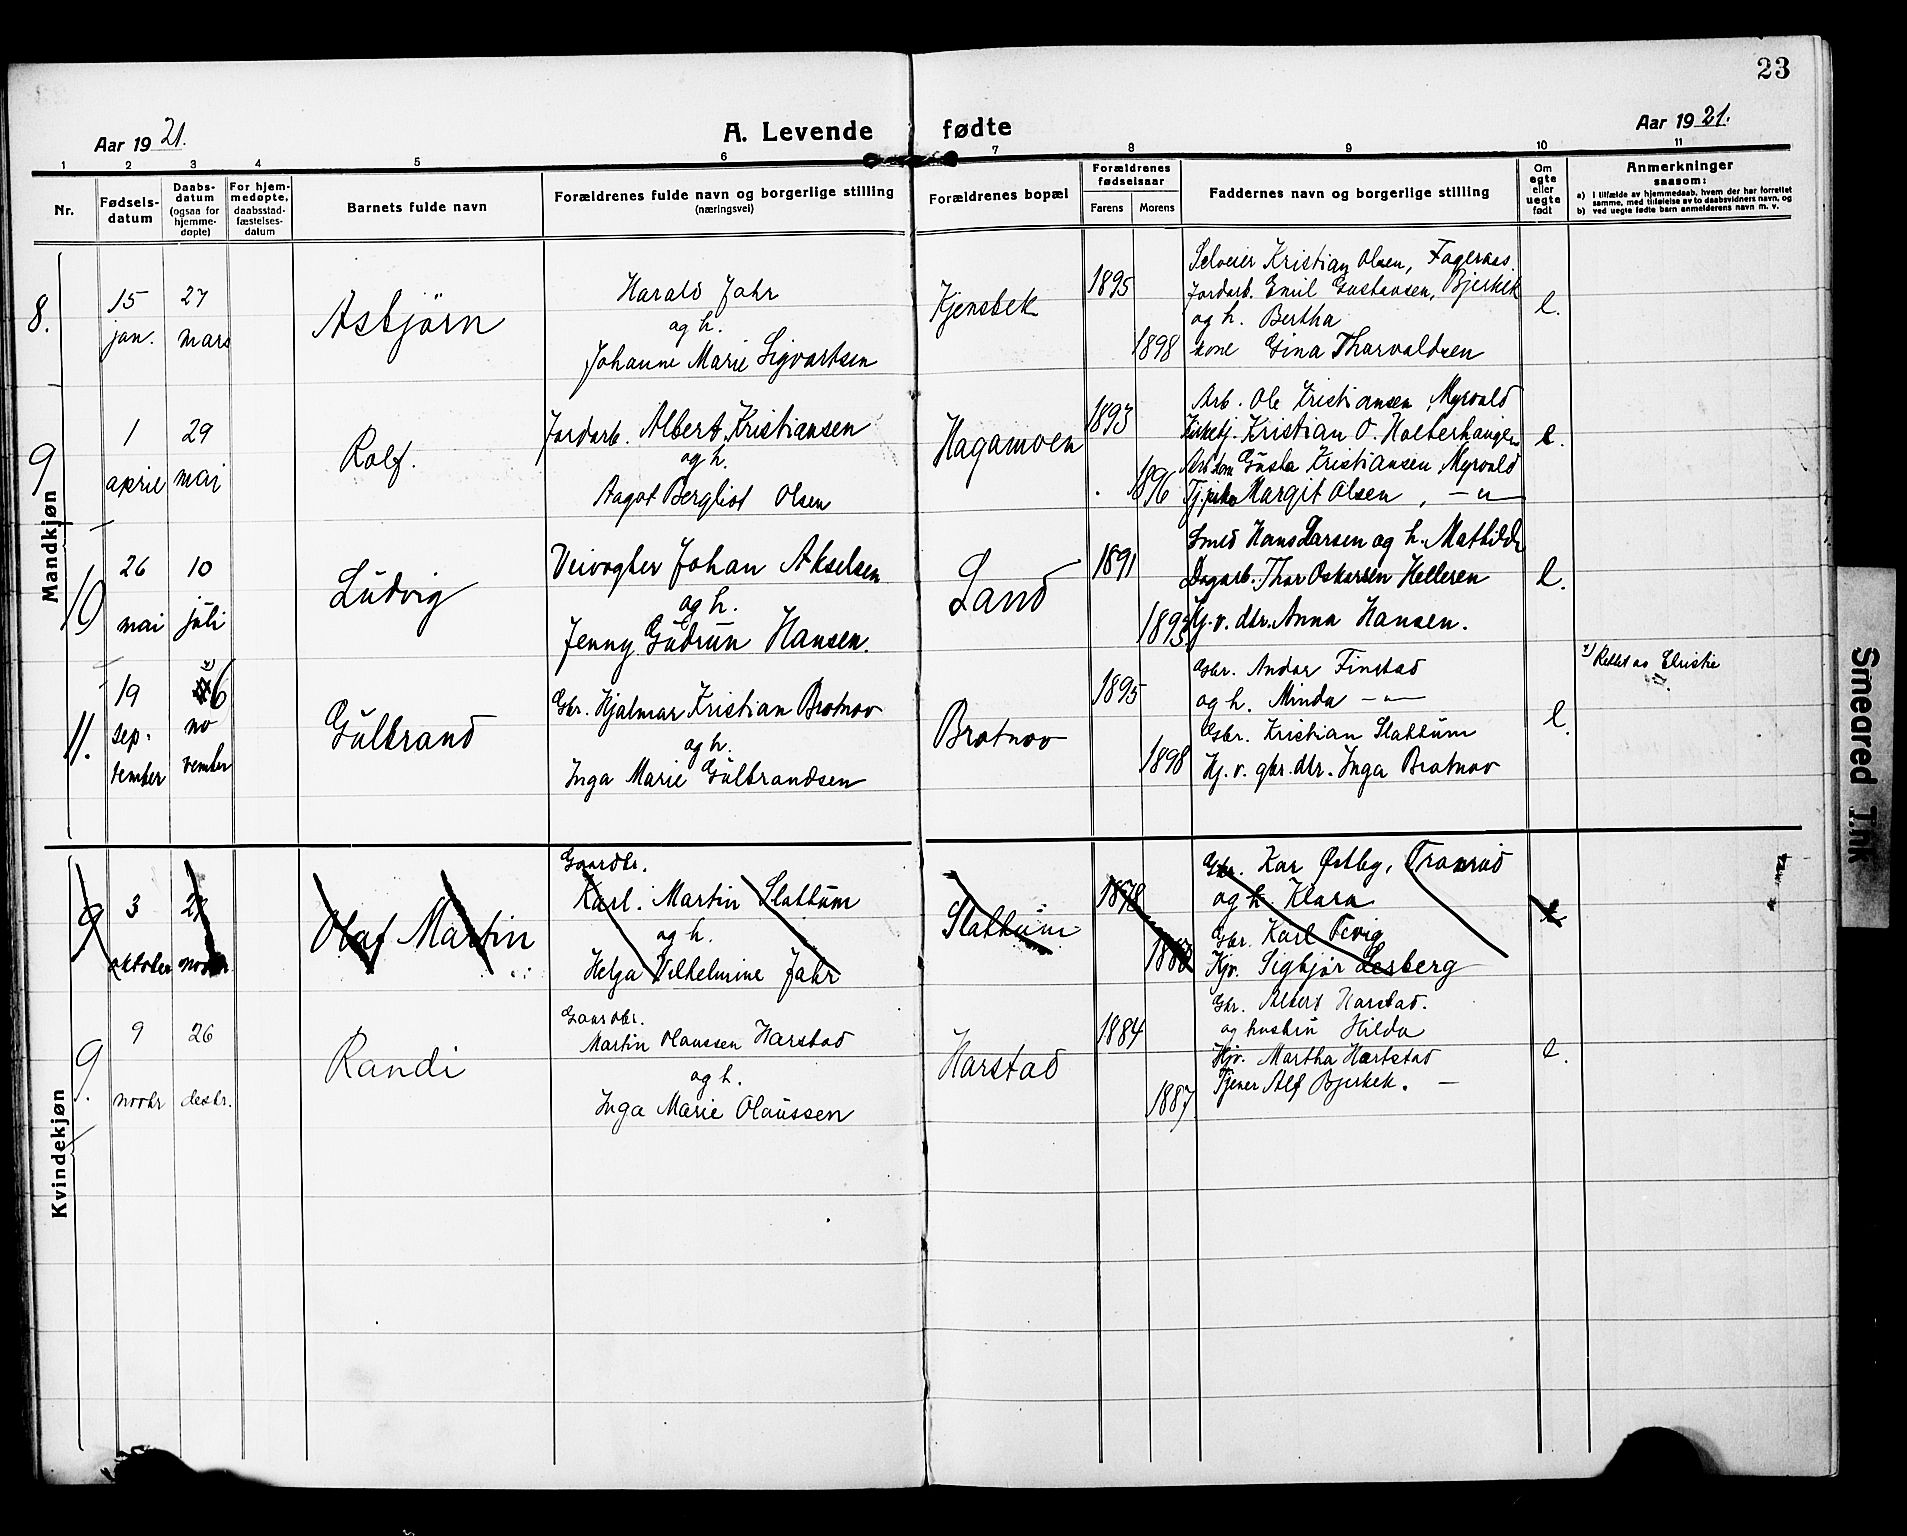 23
Aar 1921.
A. Levende fødte
Aar 1921.
1 2 3 4 5 6 7 8 9 10 11
Nr.
Fødsels-
datum
Daabs-
datum
(ogsaa for
hjemme-
døpte)
For hjem-
medøpte,
daabsstad-
fæstelses-
datum
Barnets fulde navn
Forældrenes fulde navn og borgerlige stilling
(næringsvei)
Forældrenes bopæl
Forældrenes
fødselsaar
Farens
Morens
Faddernes navn og borgerlige stilling
Om
egte
eller
uegte
født
Anmerkninger
saasom:
a) I tilfælde av hjemmedaab, hvem der har forrettet
samme, med tilføielse av to daabsvidners navn, og
b) ved uegte fødte barn anmelderens navn m. v.
Mandkjøn
8.
15
jan.
27
mars
Asbjörn
Harald Jahr
og h.
Johanne Marie Sigvartsen
Kjensbek
1895
1898
Selveier Kristian Olsen, Fagernes
Jordarb. Emil Gustavsen, Bjerkek
og h. Bertha
kone Gina Thorvaldsen
e.
9
1
april
29
mai
Rolf.
Jordarb. Albert Kristiansen
og h.
Aagot Bergliot Olsen
Hagamoen
1893
1896
Arb. Ole Kristiansen, Myrvold
Kirketj. Kristian O. Holterhaugen
Gusta Kristiansen Myrvold
Margit Olsen, — " —
e.
10
26
mai
10
juli
Ludvig
Veivogter Johan Akselsen
og h.
Jenny Gudrun Hansen.
Sand
1891
1893
Smed Hans Larsen og h. Mathilde
Dagarb. Thor Oskarsen Helleren
Hj. v. dtr. Anna Hansen.
e.
11.
19
sep-
tember
6
no
vember
Gulbrand
Gbr. Hjalmar Kristian Brotnov
og h.
Inga Marie Gulbrandsen
Brotnov
1895
1898
Gbr. Andor Finstad
og h. Minda — " —
Gbr. Kristian Slattum
Hj. v. gbr. dtr. Inga Brotnov
e.
Rettet av Christie
Kvindekjøn
9
3
oktober
27
novbr.
Olaf Martin
Gaardbr.
Karl Martin Slattum
og h.
Helga Vilhelmine Jahr
Slattum
1878
Gbr. Kar Østby, Tranrud
og h. Klara
Gbr. Karl Tevig
Hjv. Sigbjør Lesberg
e
9.
9
novbr
26
desbr.
Randi
Gaardbr.
Martin Olaussen Harstad
og h.
Inga Marie Olaussen
Harstad
1884
1887
Gbr. Albert Harstad.
og hustru Hilda
Hjv. Martha Hartstad
Tjener Alf Bjerkek. —
e.
Smeared Ink